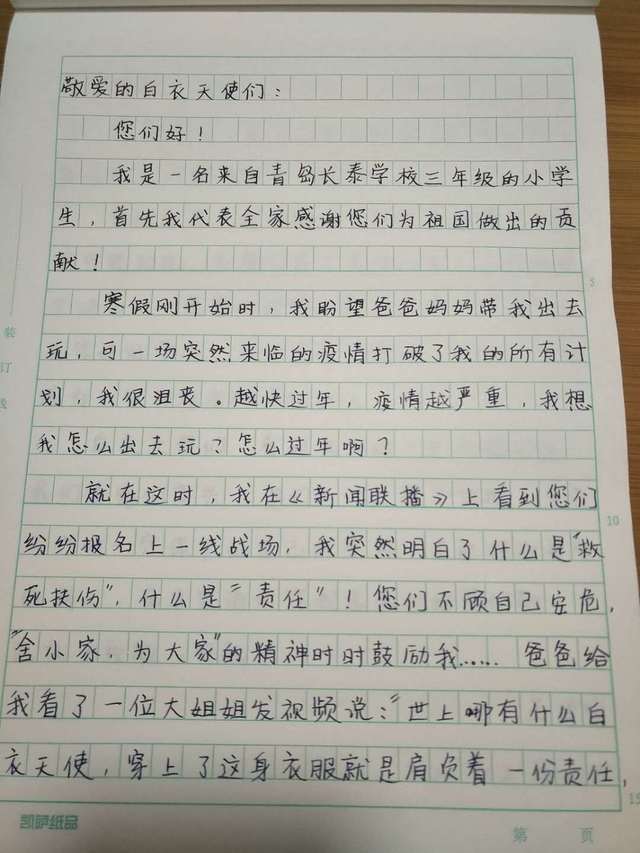 敬爱的白衣天使们：
您们好！
我是一名来自青岛长泰学校三年级的小学
生，首先我代表全家感谢您们为祖国做出的贡
献！
寒假刚开始时，我盼望爸爸妈妈带我出去
玩，可一场突然来临的疫情打破了我的所有计
划，我很沮丧。越快过年，疫情越严重，我想
我怎么出去玩？怎么过年啊？
就在这时，我在《新闻联播》上看到您们
纷纷报名上一线战场，我突然明白了什么是“救
死扶伤”，什么是“责任”！您们不顾自己安危，
“舍小家，为大家”的精神时时鼓励我……爸爸给
我看了一位大姐姐发视频说：“世上哪有什么白
衣天使，穿上了这身衣服就是肩负着一份责任，
装
订
线
5
10
15
凯萨纸品
第 页